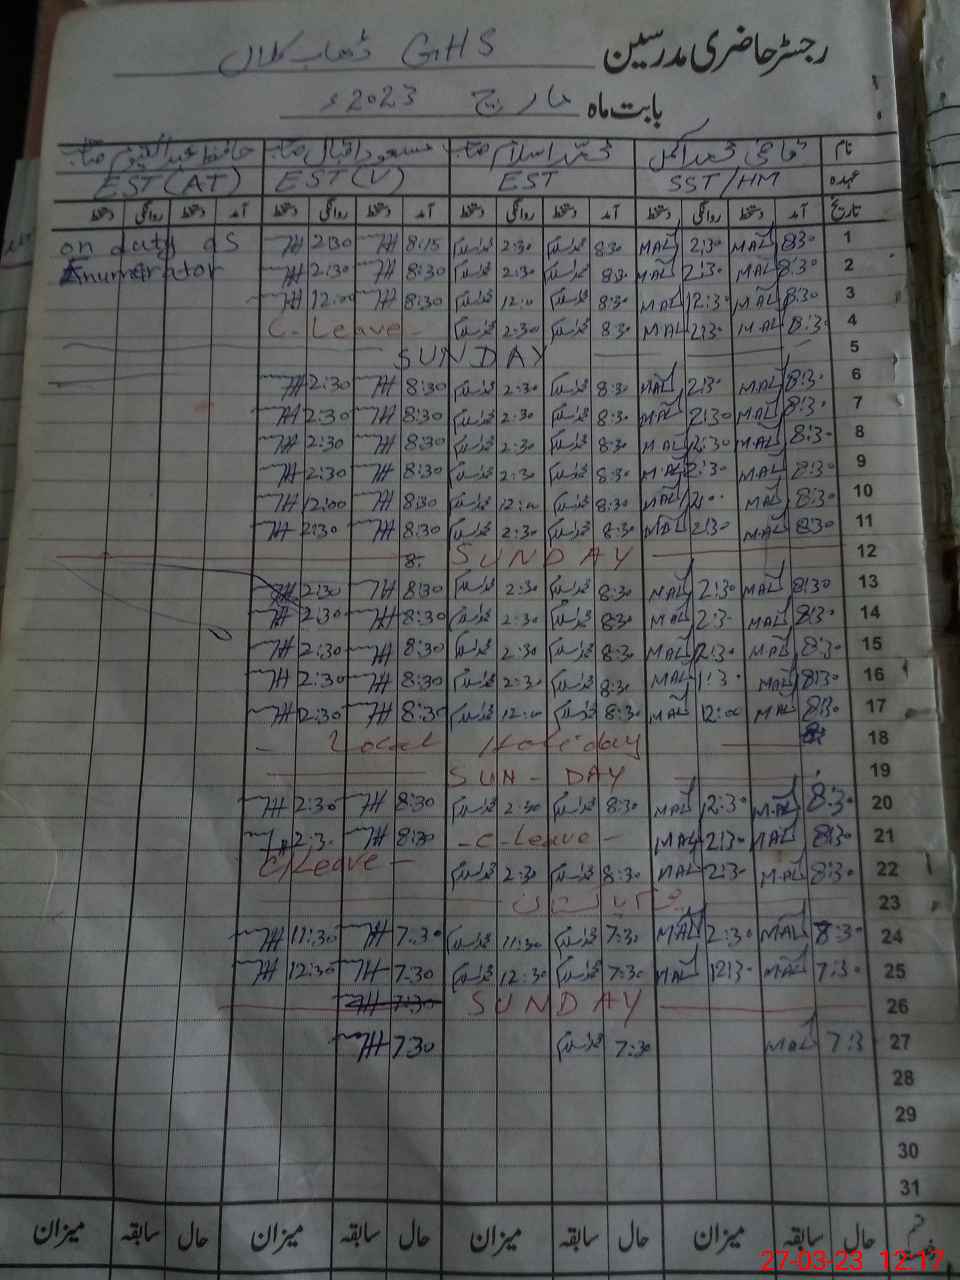 رجسٹر حاضری مدرسین GHS ڈھاب کلاں
بابت ماہ مارچ 2023ء
نام محمد اسلام صاحب مسعود اقبال صاحب
عہدہ SST/HM EST EST(V) EST(AT)
تاریخ آمد دستخط روانگی دستخط آمد دستخط روانگی دستخط آمد دستخط روانگی دستخط آمد دستخط روانگی دستخط
1 8:30 MAL 2:30 MAL 8:30 2:30 8:15 2:30 on duty as
2 8:30 MAL 2:30 MAL 8:30 2:30 8:30 2:30 Enumerator
3 8:30 MAL 12:30 MAL 8:30 12:00 8:30 12:00
4 8:30 MAL 2:30 MAL 8:30 2:30 C-Leave-
5 SUNDAY
6 8:30 MAL 2:30 MAL 8:30 2:30 8:30 2:30
7 8:30 MAL 2:30 MAL 8:30 2:30 8:30 2:30
8 8:30 MAL 2:30 MAL 8:30 2:30 8:30 2:30
9 8:30 MAL 2:30 MAL 8:30 2:30 8:30 2:30
10 8:30 MAL 12:00 MAL 8:30 12:00 8:30 12:00
11 8:30 MAL 2:30 MAL 8:30 2:30 8:30 2:30
12 SUNDAY 8:
13 8:30 MAL 2:30 MAL 8:30 2:30 8:30 2:30
14 8:30 MAL 2:30 MAL 8:30 2:30 8:30 2:30
15 8:30 MAL 2:30 MAL 8:30 2:30 8:30 2:30
16 8:30 MAL 1:30 MAL 8:30 2:30 8:30 2:30
17 8:30 MAL 12:00 MAL 8:30 12:00 8:30 12:30
18 Local Holiday
19 SUN-DAY
20 8:30 MAL 2:30 MAL 8:30 2:30 8:30 2:30
21 8:30 MAL 2:30 MAL -C-Leave- 8:30 2:30
22 8:30 MAL 2:30 MAL 8:30 2:30 C/Leave-
23 یوم پاکستان
24 8:30 MAL 2:30 MAL 7:30 11:30 7:30 11:30
25 7:30 MAL 12:30 MAL 7:30 12:30 7:30 12:30
26 SUNDAY 7:30
27 7:30 MAL 7:30 7:30
28
29
30
31
حال سابقہ میزان حال سابقہ میزان حال سابقہ میزان حال سابقہ میزان
27-03-23 12:17